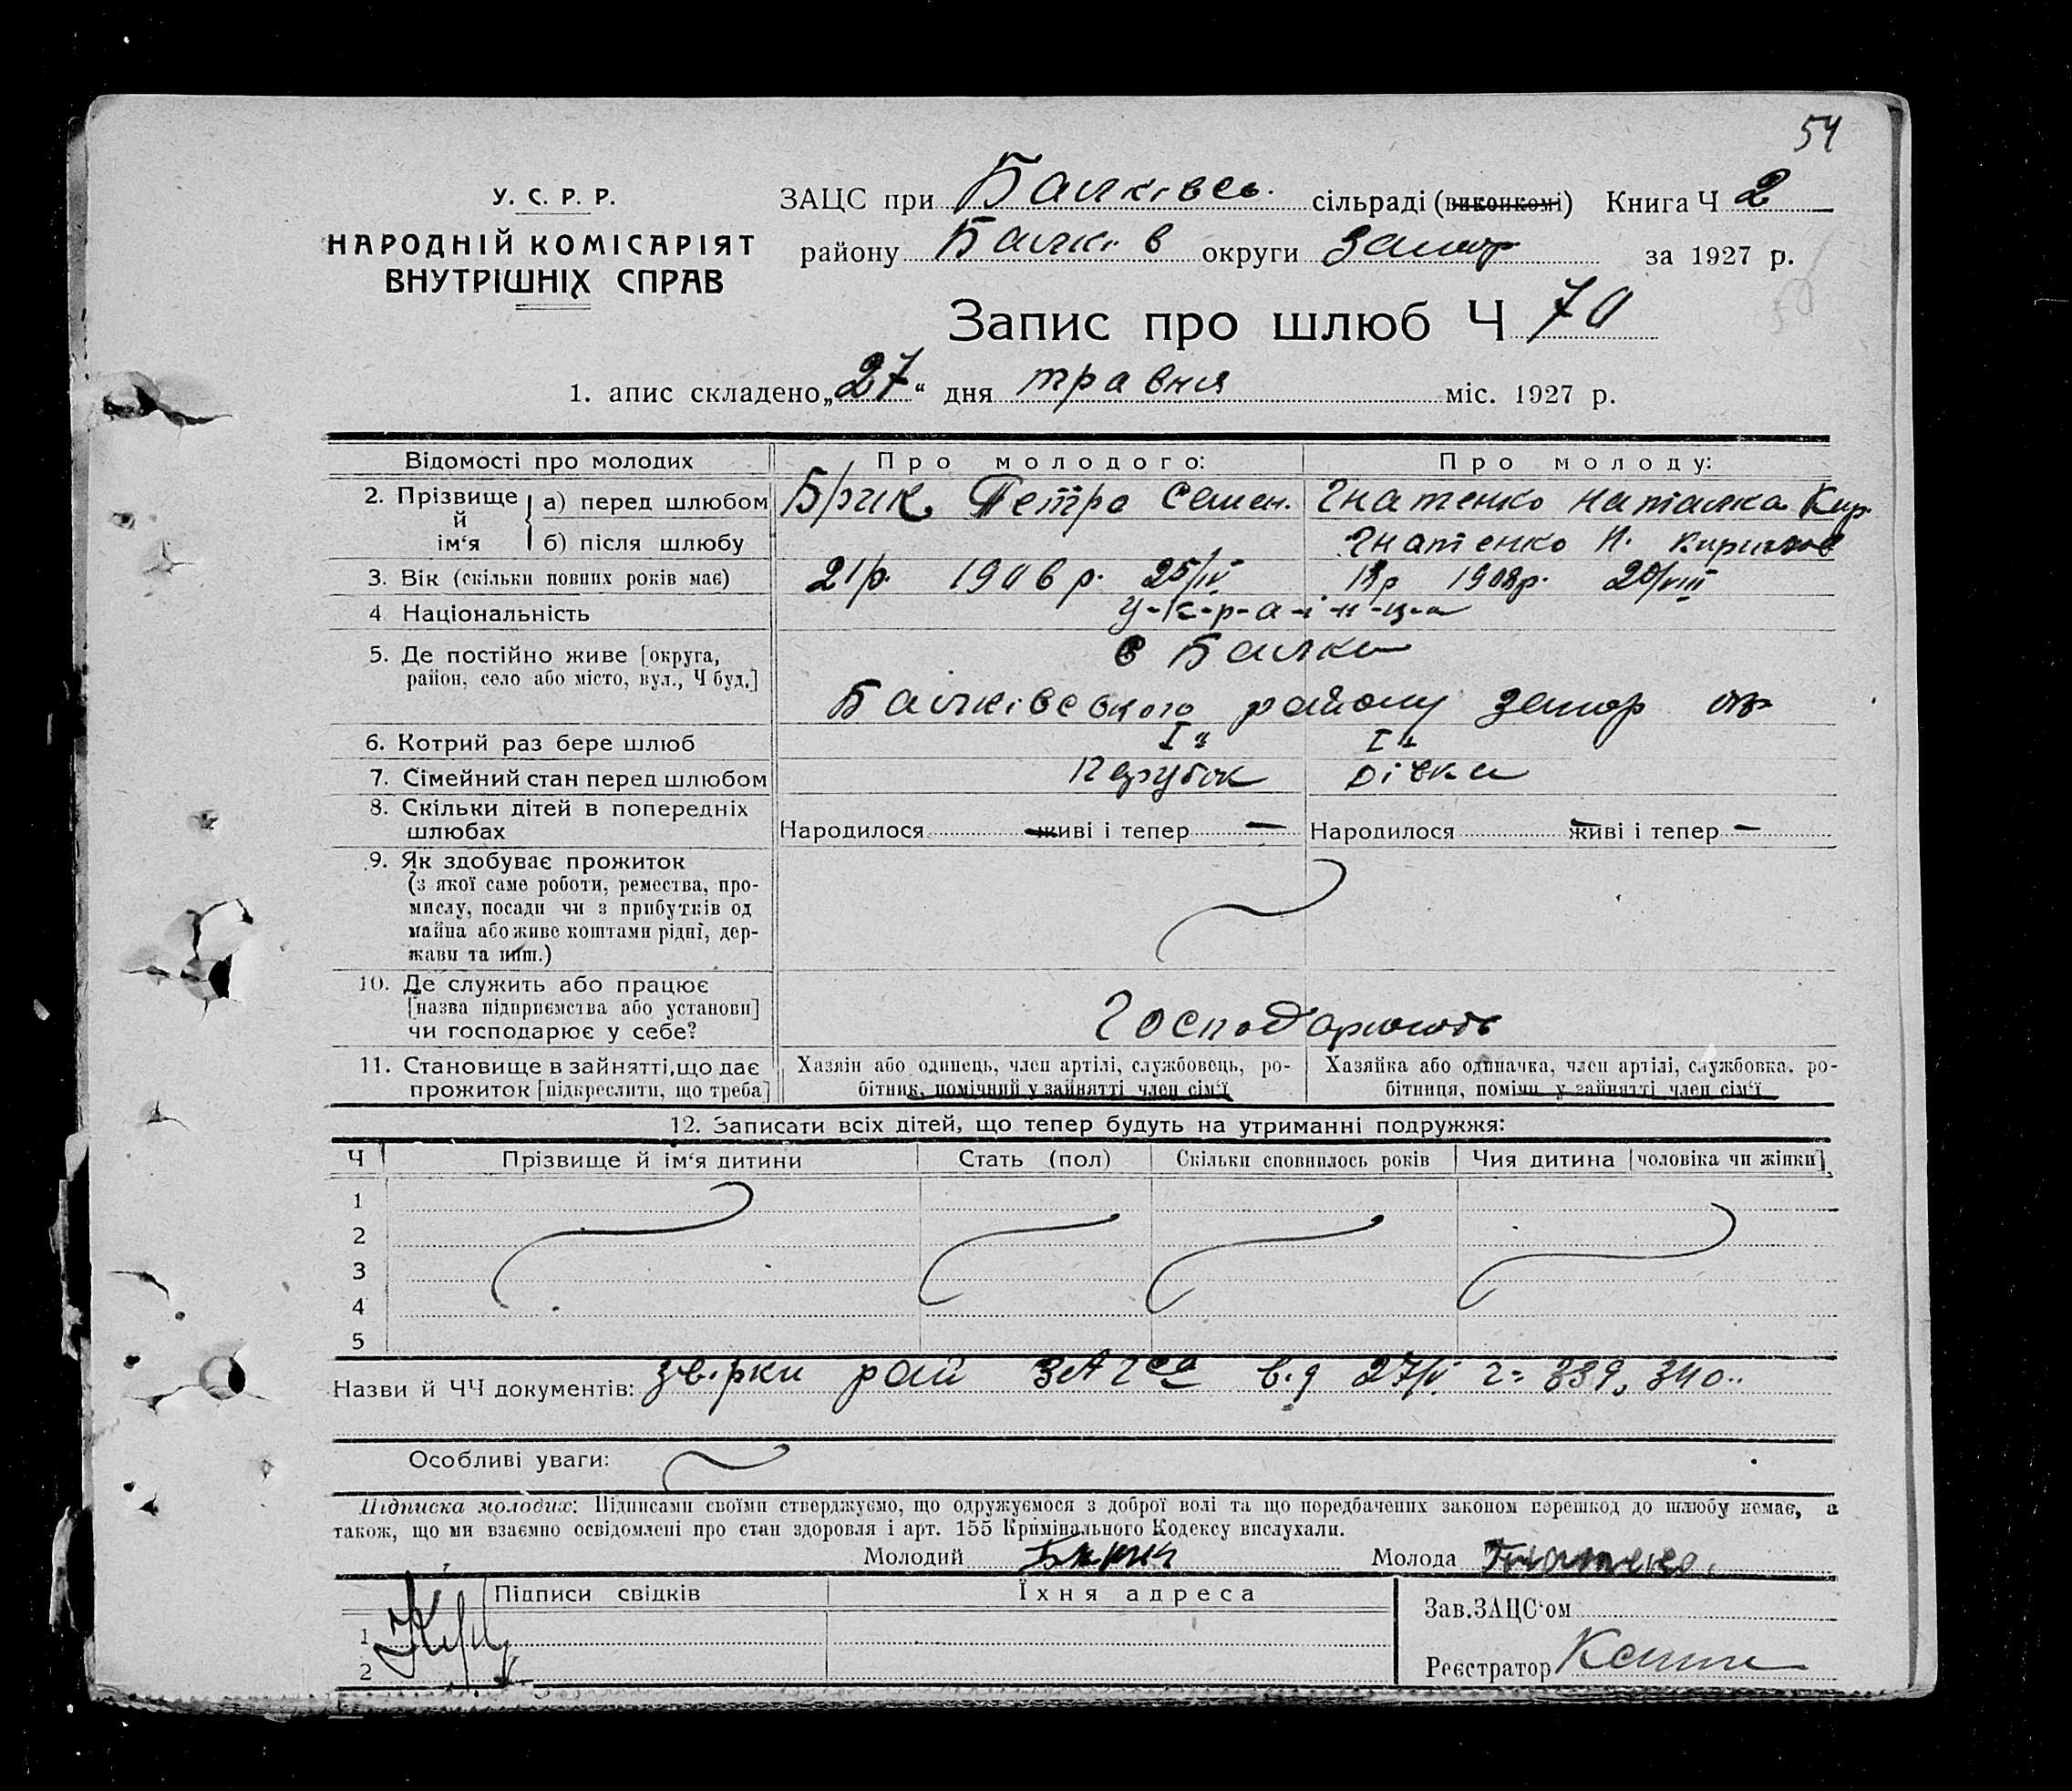 54
У. С. Р. Р.
НАРОДНІЙ КОМІСАРІЯТ
ВНУТРІШНІХ СПРАВ
ЗАЦС при Балківсь. сільраді (виконкомі) Книга Ч 2
району Балків округи Запор за 1927 р.
Запис про шлюб Ч 70
1. апис складено „27“ дня травня міс. 1927 р.
Відомості про молодих Про молодого: Про молоду:
2. Прізвище й ім‘я а) перед шлюбом Брик Петро Семен. Гнатенко Наталка Кир.
б) після шлюбу Гнатенко Н. Кирилов
3. Вік (скільки повних років має) 21 р. 1906 р. 25/IV 18 р 1908 р. 20/VIII
4 Національність У-к-р-а-ї-н-ц-і
5. Де постійно живе [округа, район, село або місто, вул., Ч буд.] с Балки
Балківського району Запор окр
6. Котрий раз бере шлюб I й I й
7. Сімейний стан перед шлюбом парубок дівка
8. Скільки дітей в попередніх
шлюбах Народилося живі і тепер — Народилося живі і тепер —
9. Як здобуває прожиток
(з якої саме роботи, ремества, про-
мислу, посади чи з прибутків од
майна або живе коштами рідні, дер-
жави та инш.)
10. Де служить або працює
[назва підприємства або установи]
чи господарює у себе? Господарюють
11. Становище в зайнятті, що дає Хазяїн або одинець, член артілі, службовець, ро- Хазяйка або одиначка, член артілі, службовка, ро-
прожиток [підкреслити, що треба] бітник, помічний у зайнятті член сім‘ї бітниця, помічн. у зайнятті член сім‘ї
12. Записати всіх дітей, що тепер будуть на утриманні подружжя:
Ч Прізвище й ім‘я дитини Стать (пол) Скільки сповнилось років Чия дитина [чоловіка чи жінки]
1
2
3
4
5
Назви й ЧЧ документів: звірки рай ЗАГса від 27/V 339, 340
Особливі уваги:
Підписка молодих: Підписами своїми стверджуємо, що одружуємося з доброї волі та що передбачених законом перешкод до шлюбу немає, а
також, що ми взаємно освідомлені про стан здоровля і арт. 155 Кримінального Кодексу вислухали.
Молодий Молода Гнатенко
Підписи свідків Їхня адреса Зав. ЗАЦС‘ом
1
2 Реєстратор